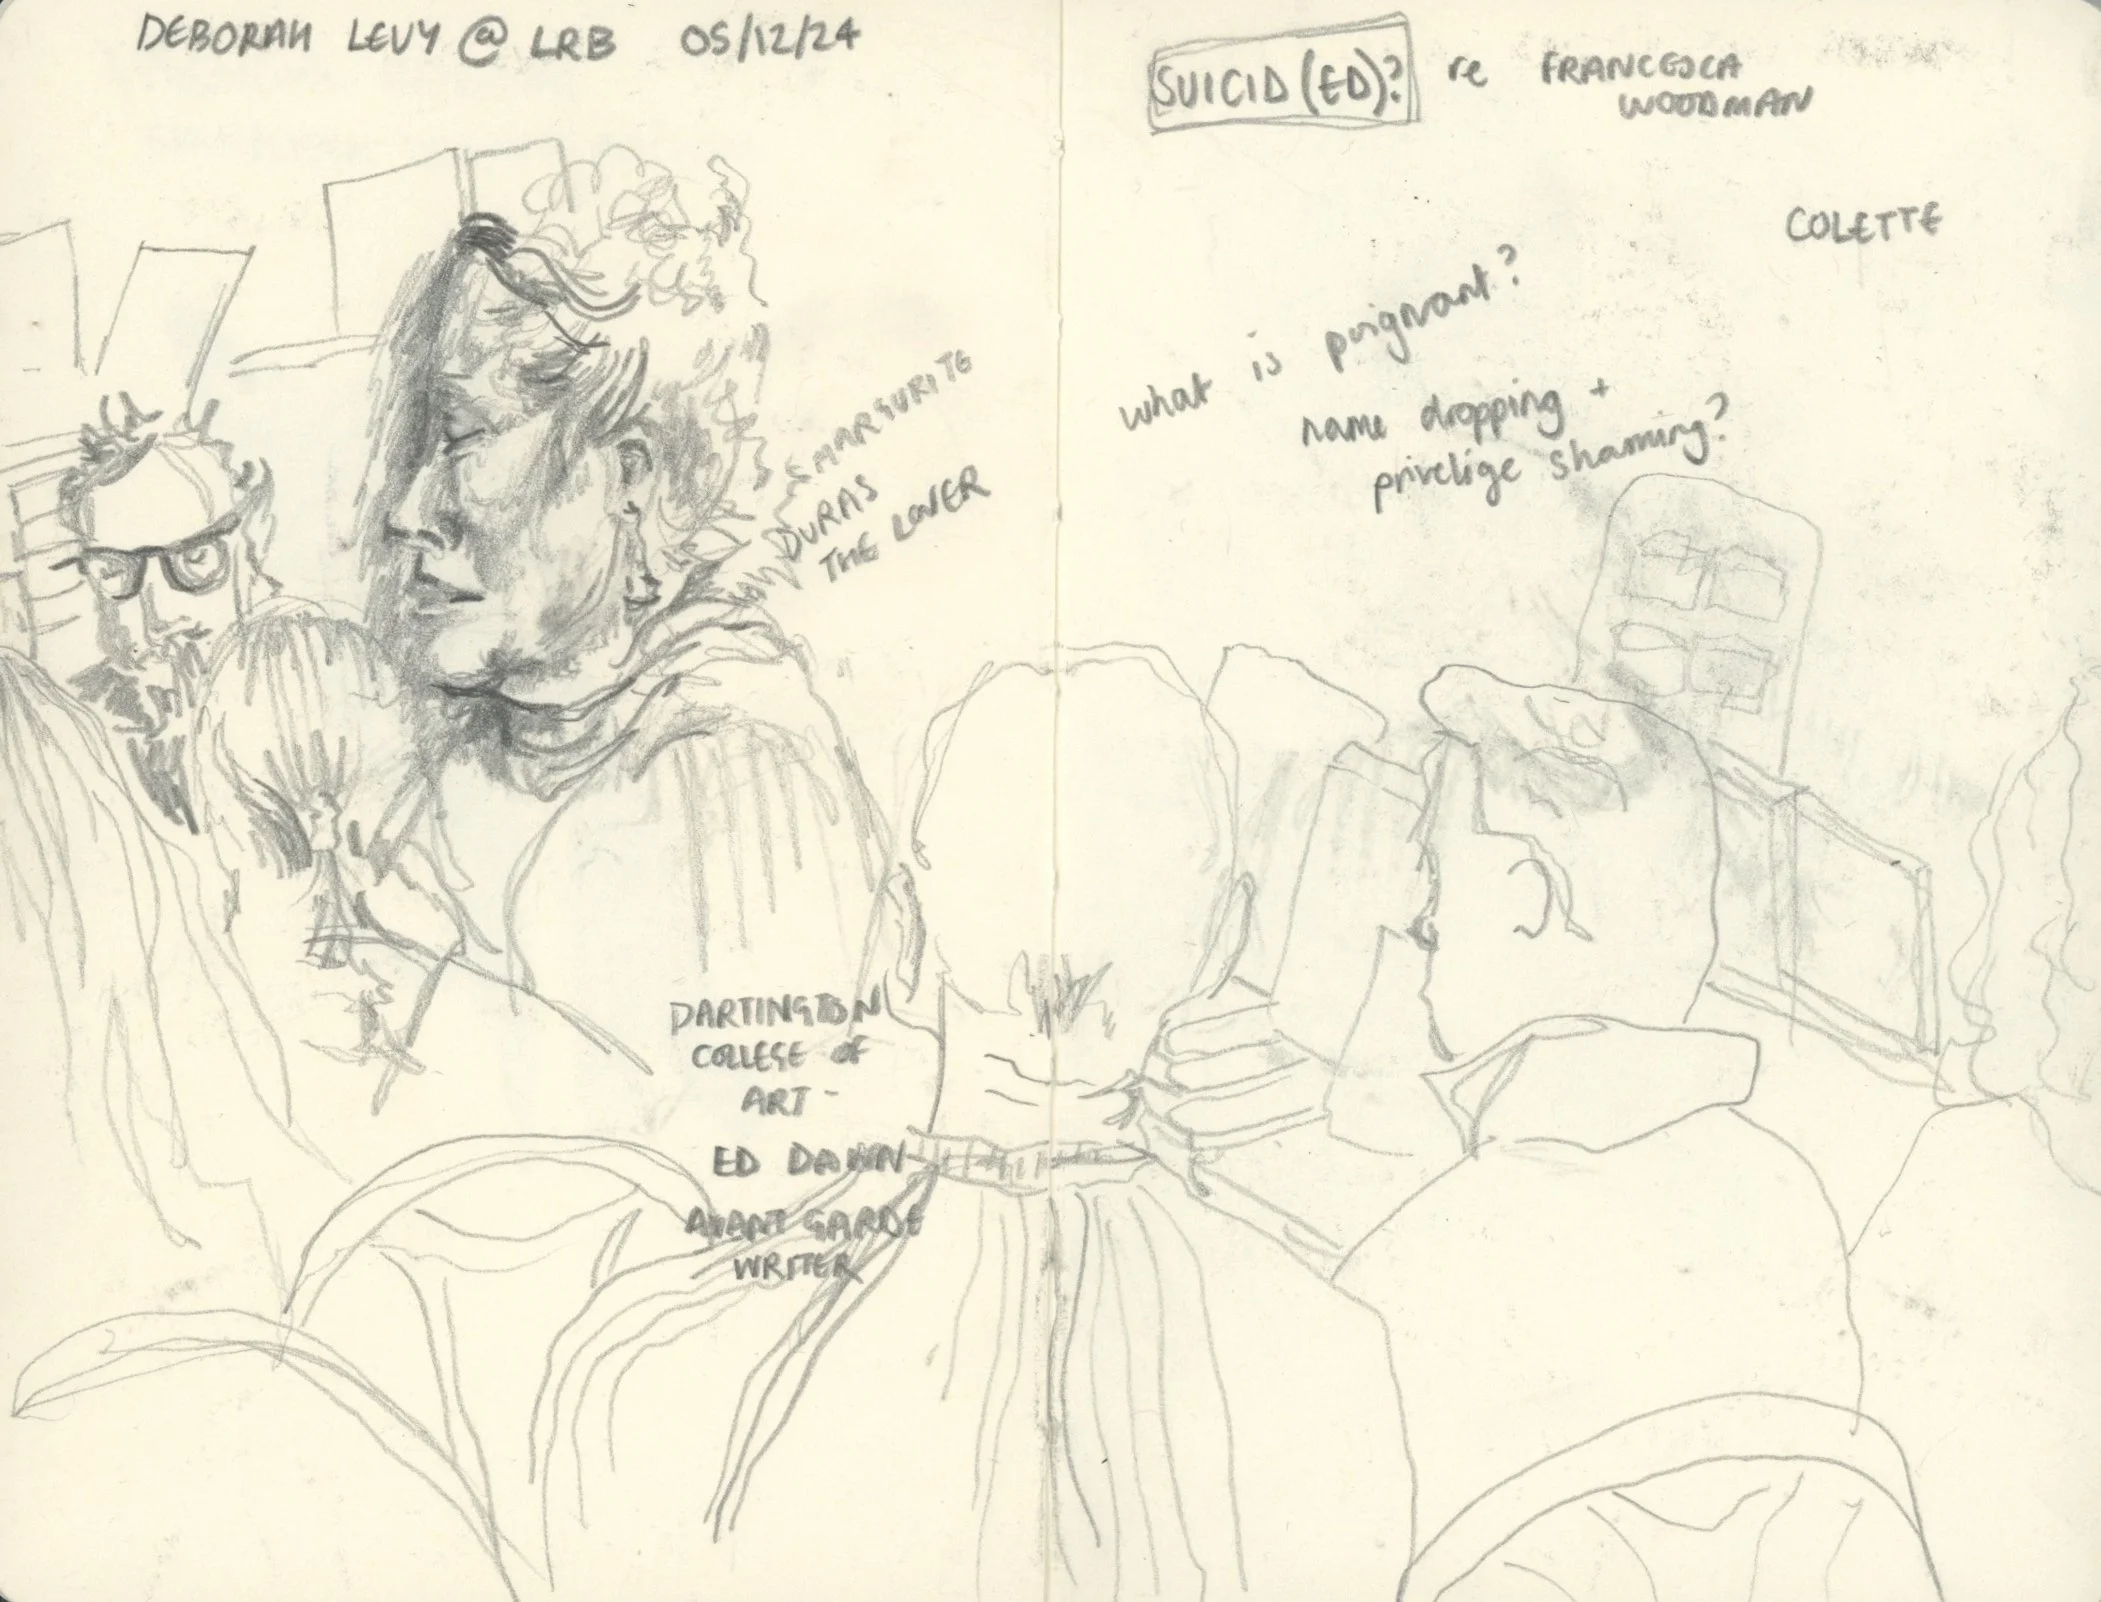 DEBORAH LEVY @ LRB 05/12/24
SUICID(ED)? re FRANCESCA
WOODMAN
COLETTE
what is poignant?
name dropping +
privelige shaming?
MARGURITE
DURAS
THE LOVER
DARTINGTON
COLLEGE OF
ART -
ED DAWN
AVANT GARDE
WRITER